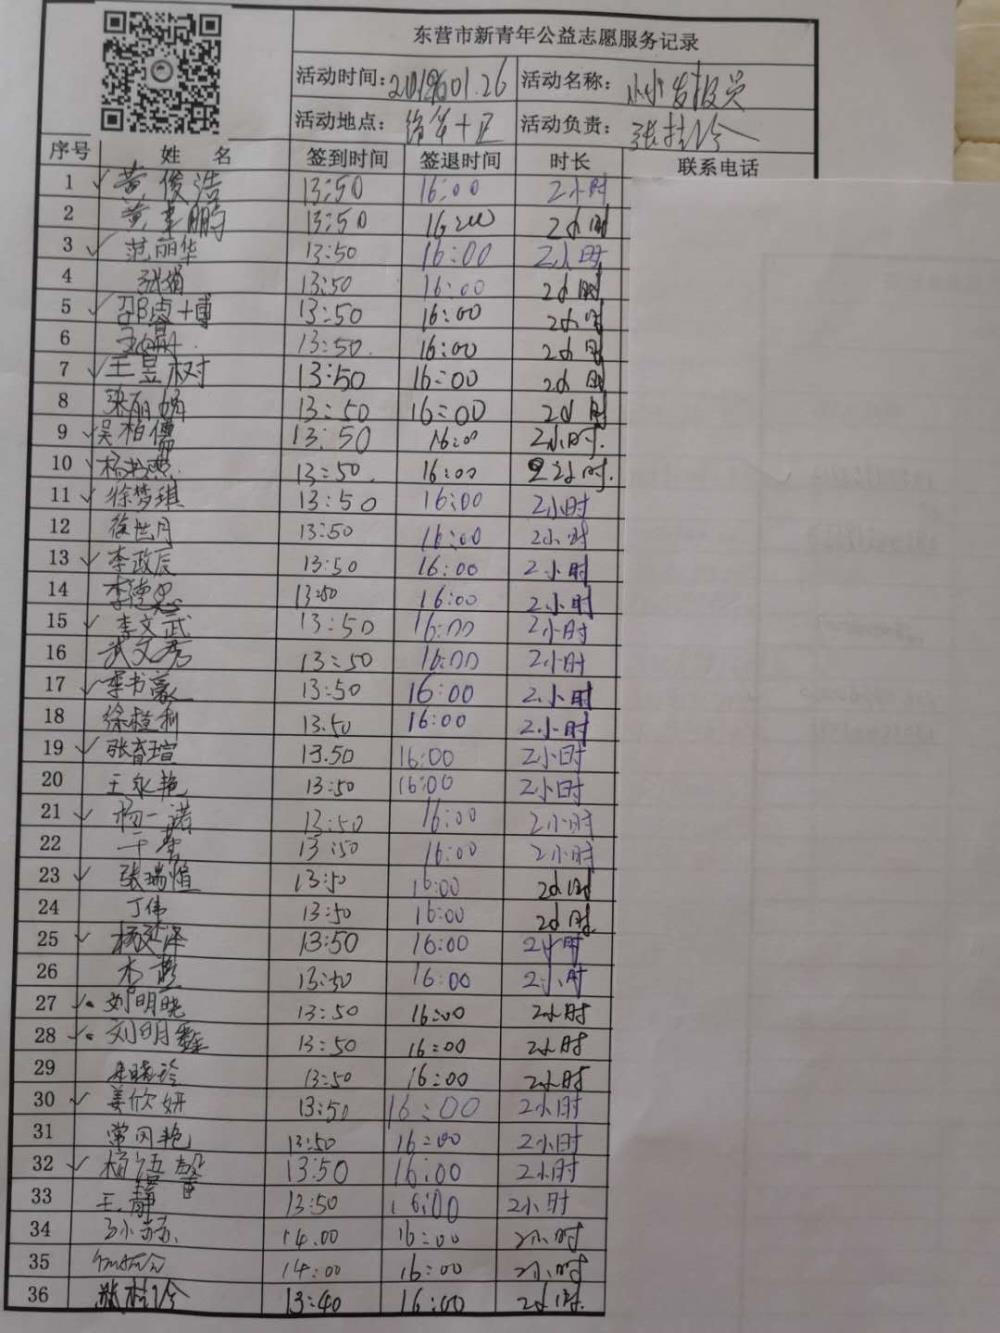 东营市新青年公益志愿服务记录
活动时间: 01.26 活动名称: 小小发报员
活动地点: 活动负责: 张桂冷
序号 姓 名 签到时间 签退时间 时长 联系电话
1 ✓ 黄俊浩 13:50 16:00 2小时
2 黄 鹏 13:50 16:00 2小时
3 ✓ 范丽华 13:50 16:00 2小时
4 张娟 13:50 16:00 2小时
5 ✓ 邵睿博 13:50 16:00 2小时
6 13:50. 16:00 2小时
7 ✓ 王昱树 13:50 16:00 2小时
8 梁丽娟 13:50 16:00 2小时
9 ✓ 吴柏儒 13:50 16:00 2小时.
10 ✓ 13:50. 16:00 2小时.
11 ✓ 徐梦琪 13:50 16:00 2小时
12 徐世月 13:50 16:00 2小时
13 ✓ 李政辰 13:50 16:00 2小时
14 李德忠 13:50 16:00 2小时
15 ✓ 李文武 13:50 16:00 2小时
16 武文秀 13:50 16:00 2小时
17 ✓ 李书豪 13:50 16:00 2小时
18 徐桂利 13:50 16:00 2小时
19 ✓ 张育瑄 13:50 16:00 2小时
20 王永艳 13:50 16:00 2小时
21 ✓ 杨一诺 13:50 16:00 2小时
22 13:50 16:00 2小时
23 ✓ 张瑞恒 13:50 16:00 2小时
24 丁伟 13:50 16:00 2小时
25 ✓ 13:50 16:00 2小时
26 13:50 16:00 2小时
27 ✓ 刘明晓 13:50 16:00 2小时
28 ✓ 刘明鑫 13:50 16:00 2小时
29 朱晓玲 13:50 16:00 2小时
30 ✓ 姜欣妍 13:50 16:00 2小时
31 常冈艳 13:50 16:00 2小时
32 ✓ 杨语馨 13:50 16:00 2小时
33 王静 13:50 16:00 2小时
34 14.00 16:00 2小时
35 14:00 16:00 2小时
36 张桂冷 13:40 16:00 2小时.